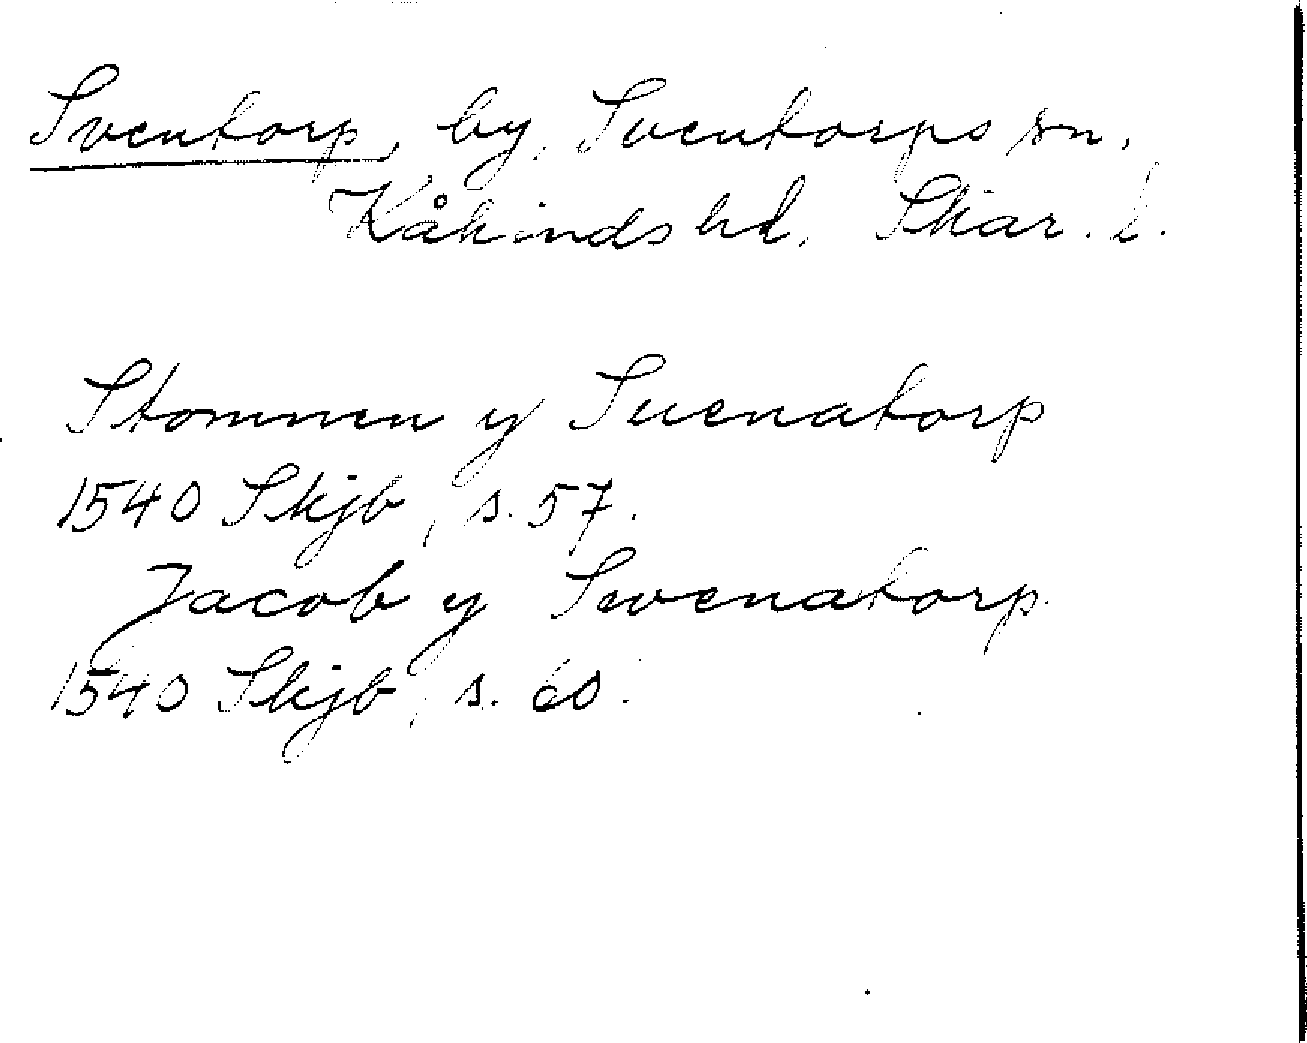 Sventorp, by, Sventorps sn.
Kåkinds hd, Skar. l.
Stommen y Suenatorp
1540 Skjb, s. 57.
Jacob y Swenatorp.
1540 Skjb, s. 60.